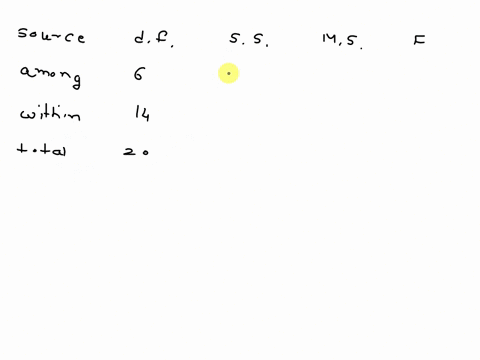 Source d.f. S.S. M.S. F
among 6
within 14
total 20